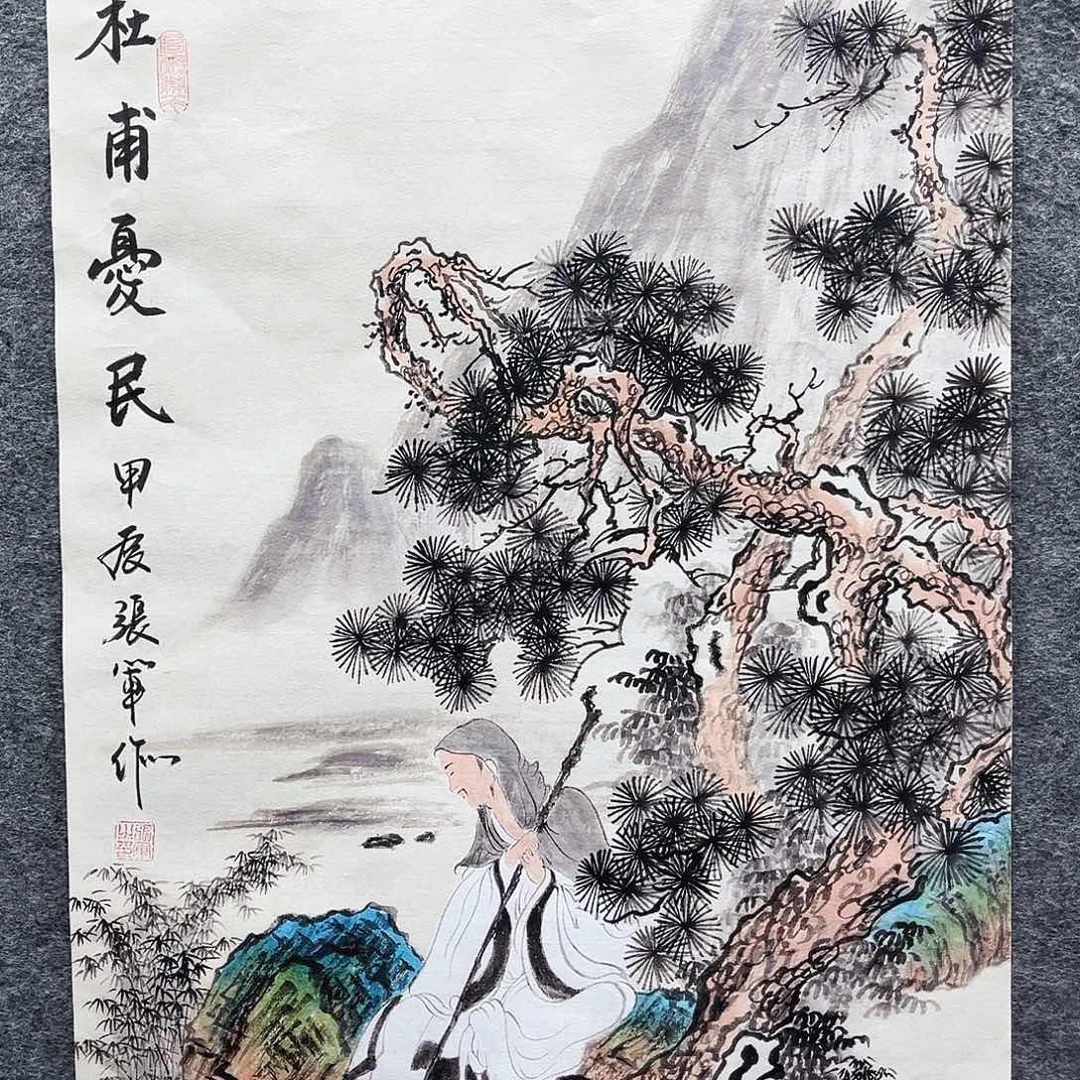 杜甫憂民甲辰張军作